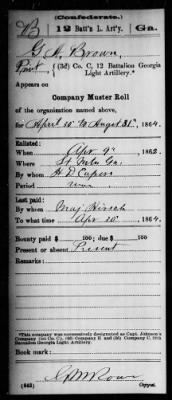 (Confederate.)
B 12 Batt'n L. Art'y. Ga.
G. W. Brown,
Pvt., (3d) Co. C, 12 Battalion Georgia
Light Artillery.*
Appears on
Company Muster Roll
of the organization named above,
for April 20 to August 31, 1864.
Enlisted:
When Apr 9, 1862.
Where
By whom H. D. Capers
Period War
Last paid:
By whom Maj Hirsch
To what time Apr 20, 1864.
Bounty paid $ 100; due $ 100
Present or absent Present
Remarks:
*This company was successively designated as Capt. Johnson's
Battalion Georgia Light Artillery.
Book mark:
(642) Copyist.